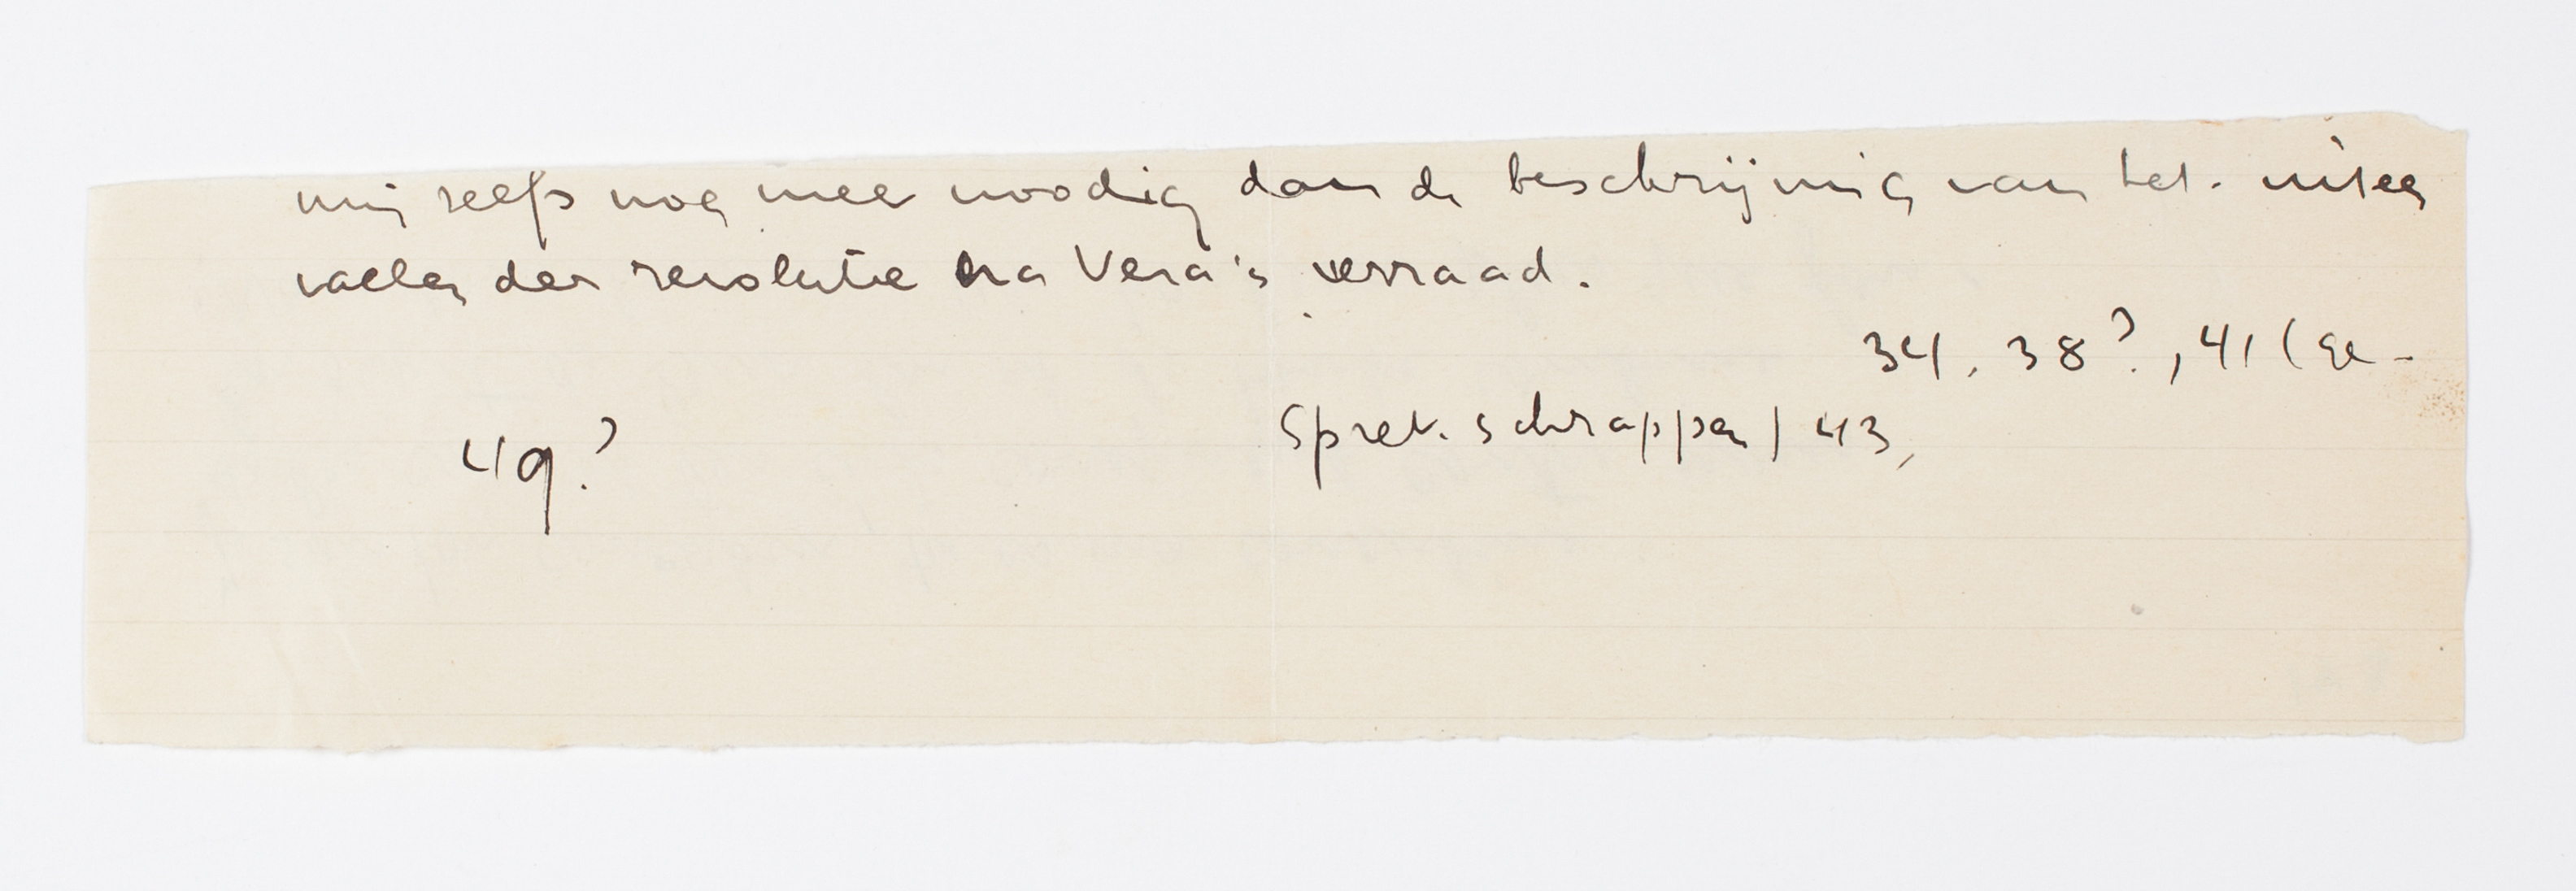 mij zelfs nog meer noodig dan de beschrijving van het uiteen
vallen der revolutie na Vera's verraad.
34, 38?, 41 (ge-
sprek schrappen) 43,
49?